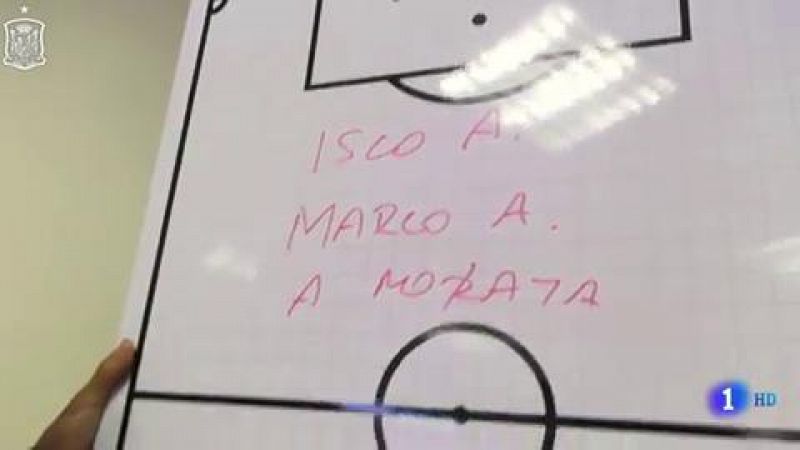 ISCO A.
MARCO A.
A MORATA
1 HD